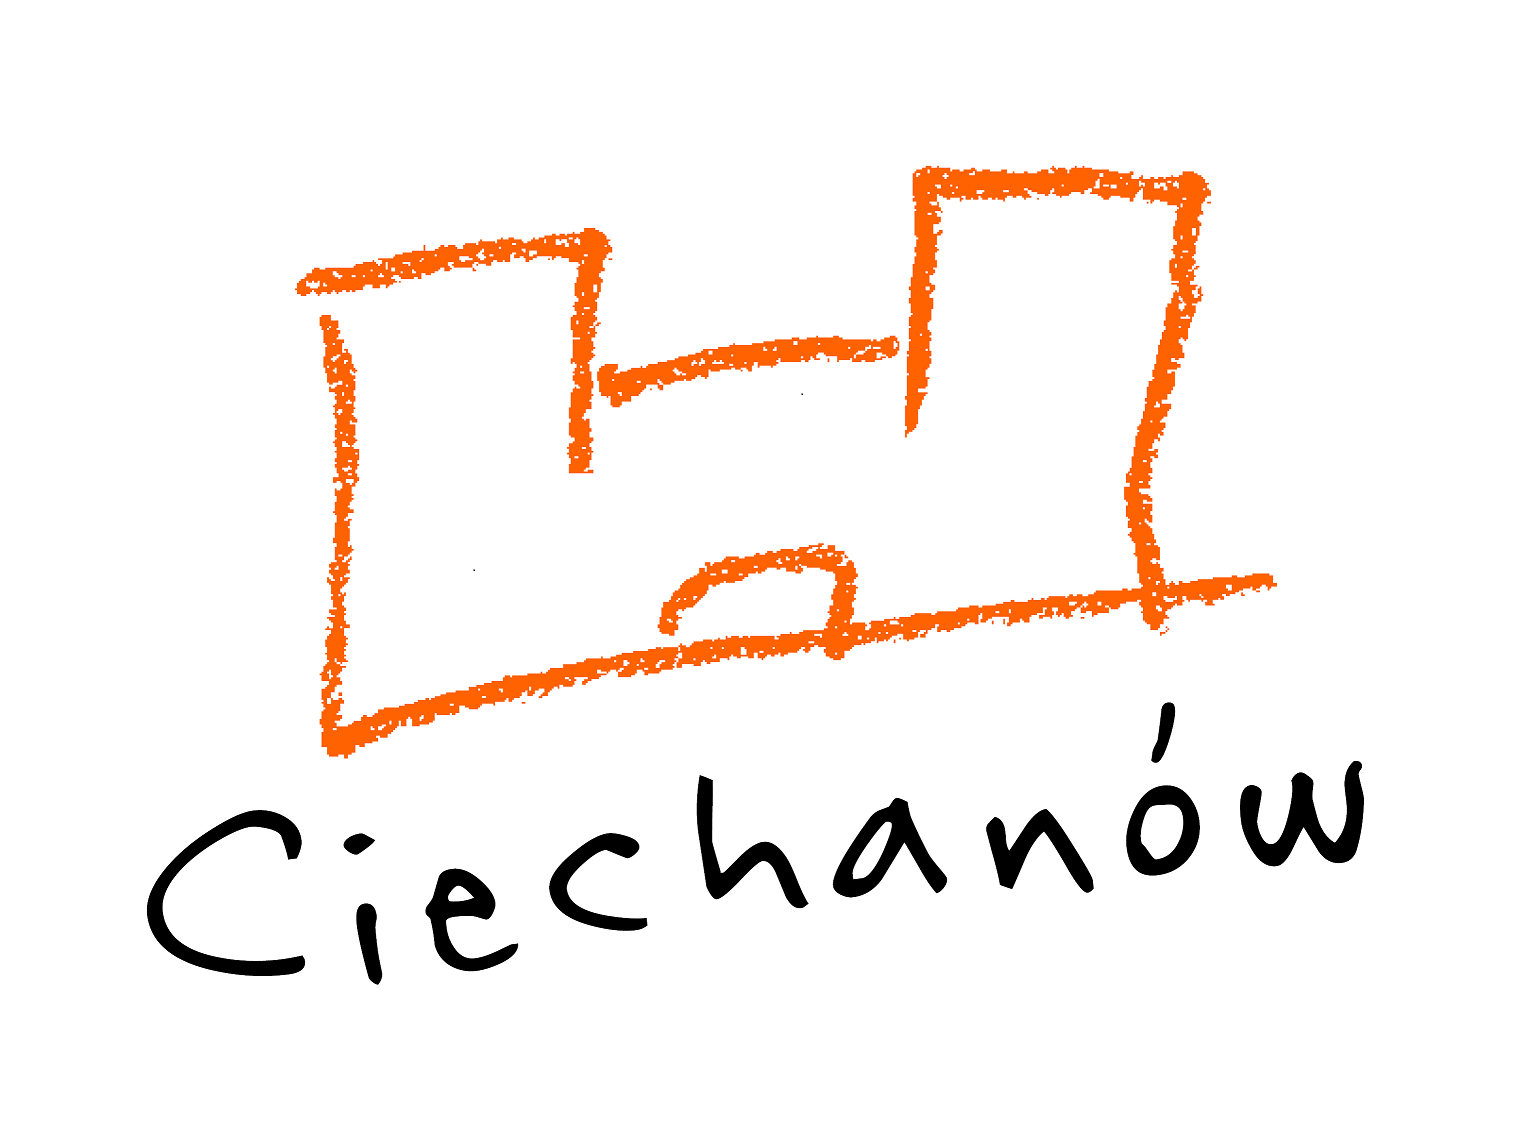 Ciechanów